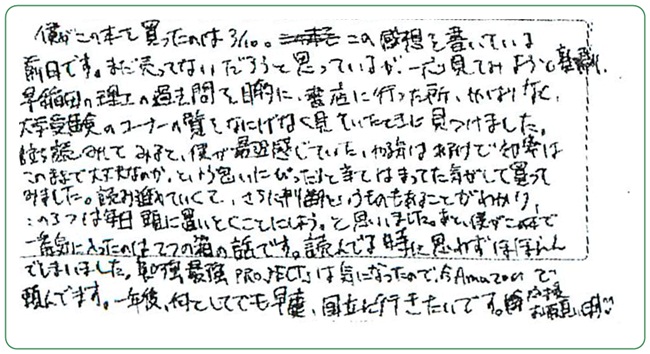 僕がこの本を買ったのは3/10。この感想を書いている
前日です。まだ売ってないだろうと思っているが、一応見てみようと塾帰り、
早稲田の理工の過去問を目的に、書店に行った所、やはりなく、
大学受験のコーナーの質をなにげなく見ていたときに見つけました。
立ち読みしてみると、僕が最近感じていた、勉強は だけで は
このままで大丈夫なのか、という思いにぴったりと当てはまってた気がして買って
みました。読み進めていくて、さらに判断というものもあることがわかり、
この3つは毎日頭に置いとくことにしよう。と思いました。あと、僕がこの本で
一番気に入ったのは7つの箱の話です。読んでる時に思わずほほえん
でしまいました。勉強最強PROJECTSは気になったので、今Amazonで
頼んでます。一年後、何としてでも早慶、国立に行きたいです。応援お願いします